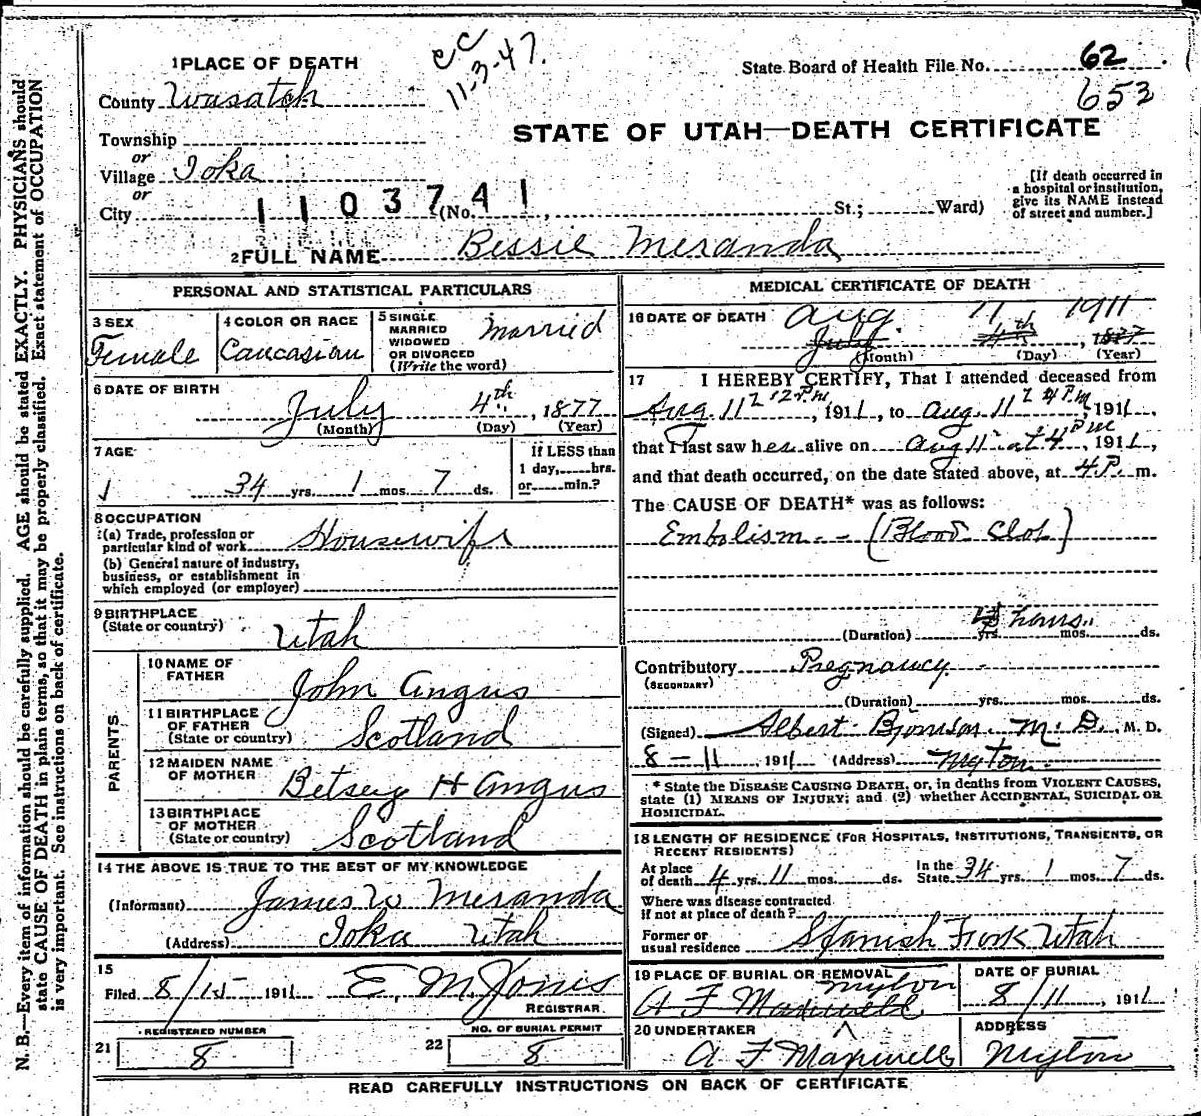 CC
11-3-47.
1 PLACE OF DEATH
State Board of Health File No. 62
653
County Wasatch
STATE OF UTAH—DEATH CERTIFICATE
Township
or
Village Ioka
or
City
1103741
(No. , St.; Ward)
[If death occurred in
a hospital or institution,
give its NAME instead
of street and number.]
2 FULL NAME Bessie Meranda
PERSONAL AND STATISTICAL PARTICULARS
3 SEX
Female
4 COLOR OR RACE
Caucasian
5 SINGLE
MARRIED
WIDOWED
OR DIVORCED
(Write the word)
Married
6 DATE OF BIRTH
July 4th, 1877
(Month) (Day) (Year)
7 AGE
34 yrs. 1 mos. 7 ds.
If LESS than
1 day, hrs.
or min.?
8 OCCUPATION
(a) Trade, profession or
particular kind of work Housewife
(b) General nature of industry,
business, or establishment in
which employed (or employer)
9 BIRTHPLACE
(State or country)
Utah
PARENTS
10 NAME OF
FATHER
John Angus
11 BIRTHPLACE
OF FATHER
(State or country)
Scotland
12 MAIDEN NAME
OF MOTHER
Betsey H Angus
13 BIRTHPLACE
OF MOTHER
(State or country)
Scotland
14 THE ABOVE IS TRUE TO THE BEST OF MY KNOWLEDGE
(Informant) James W Meranda
(Address) Ioka Utah
15
Filed 8/15 1911 E. M. Jones
REGISTRAR
REGISTERED NUMBER
21 8
NO. OF BURIAL PERMIT
22 8
MEDICAL CERTIFICATE OF DEATH
16 DATE OF DEATH Aug. 11 1911
July 4th, 1877
(Month) (Day) (Year)
17 I HEREBY CERTIFY, That I attended deceased from
Aug. 11 12 P.M., 1911, to Aug. 11 4 P.M., 1911,
that I last saw her alive on Aug 11 at 4 PM, 1911,
and that death occurred, on the date stated above, at 4 P. m.
The CAUSE OF DEATH* was as follows:
Embolism -- (Blood Clot)
(Duration) yrs. hours mos. ds.
Contributory Pregnancy
(SECONDARY)
(Duration) yrs. mos. ds.
(Signed) Albert Bjornson M. D., M. D.
8-11 1911 (Address) Myton
* State the DISEASE CAUSING DEATH, or, in deaths from VIOLENT CAUSES,
state (1) MEANS OF INJURY; and (2) whether ACCIDENTAL, SUICIDAL OR
HOMICIDAL.
18 LENGTH OF RESIDENCE (FOR HOSPITALS, INSTITUTIONS, TRANSIENTS, OR
RECENT RESIDENTS)
At place
of death 4 yrs. 11 mos. ds.
In the
State 34 yrs. 1 mos. 7 ds.
Where was disease contracted
if not at place of death?
Former or
usual residence Spanish Fork Utah
19 PLACE OF BURIAL OR REMOVAL
Myton
A F Maxwell
DATE OF BURIAL
8/11, 1911
20 UNDERTAKER
A F Maxwell
ADDRESS
Myton
READ CAREFULLY INSTRUCTIONS ON BACK OF CERTIFICATE
N. B.—Every item of information should be carefully supplied. AGE should be stated EXACTLY. PHYSICIANS should
state CAUSE OF DEATH in plain terms, so that it may be properly classified. Exact statement of OCCUPATION
is very important. See instructions on back of certificate.